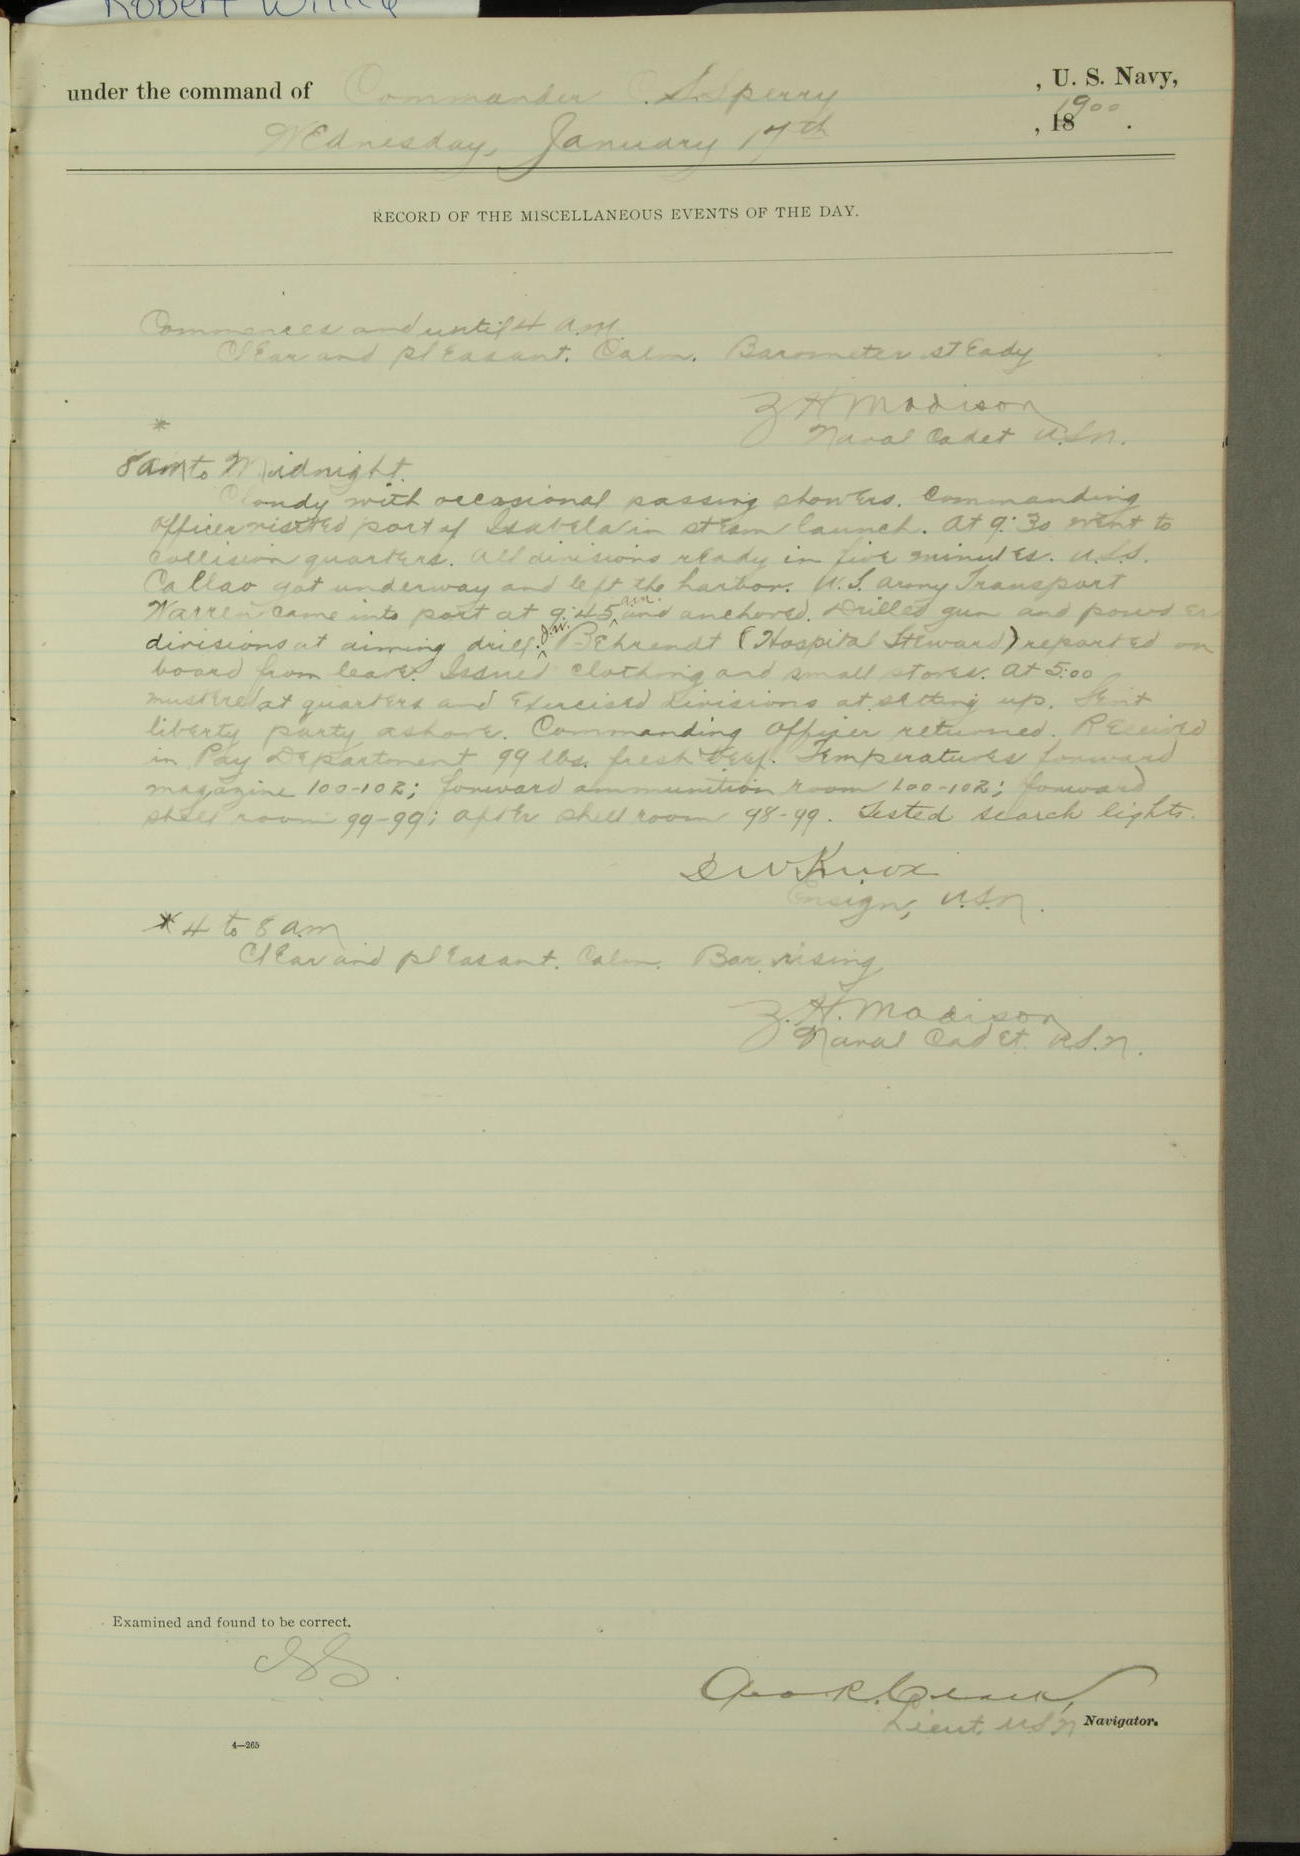 Robert Wi
under the command of Commander C. S. Sperry, U. S. Navy,
Wednesday, January 17th, 18 1900.
RECORD OF THE MISCELLANEOUS EVENTS OF THE DAY.
Commences and until 4 a.m.
Clear and pleasant. Calm. Barometer steady
Z H Madison
Naval Cadet U.S.N.
*
8 am to Midnight.
Cloudy with occasional passing showers. Commanding
Officer visited port of Isabela in steam launch. At 9:30 went to
collision quarters. All divisions ready in five minutes. U.S.S.
Callao got underway and left the harbor. U.S. Army Transport
Warren came into port at 9:45 a.m. and anchored. Drilled gun and powder
divisions at aiming drill. J.W. Behrendt (Hospital Steward) reported on
board from leave. Issued clothing and small stores. At 5:00
mustered at quarters and exercised divisions at setting up. Sent
liberty party ashore. Commanding Officer returned. Received
in Pay Department 99 lbs. fresh beef. Temperatures forward
magazine 100-102; forward ammunition room 100-102; forward
shell room 99-99; after shell room 98-99. Tested search lights.
D W Knox
Ensign, U.S.N.
* 4 to 8 a.m
Clear and pleasant. Calm. Bar. rising
Z. H. Madison
Naval Cadet U.S.N.
Examined and found to be correct.
CSS.
Geo. R. Clark,
Lieut. U.S.N Navigator.
4—265